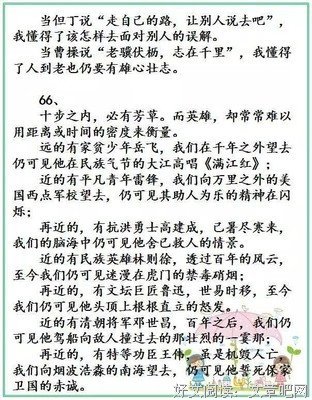 当但丁说“走自己的路，让别人说去吧”，
我懂得了该怎样去面对别人的误解。
当曹操说“老骥伏枥，志在千里”，我懂得
了人到老也仍要有雄心壮志。
66、
十步之内，必有芳草。而英雄，却常常难以
用距离或时间的密度来衡量。
远的有家贫少年岳飞，我们在千年之外望去
仍可见他在民族气节的大江高唱《满江红》；
近的有平凡青年雷锋，我们向万里之外的美
国西点军校望去，仍可见其助人为乐的精神在闪
烁；
再近的，有抗洪勇士高建成，已暑尽寒来，
我们的脑海中仍可见他舍己救人的情景。
近的有民族英雄林则徐，透过百年的风云，
至今我们仍可见迷漫在虎门的禁毒硝烟；
再近的，有文坛巨匠鲁迅，世易时移，至今
我们仍可见他头顶上根根直立的怒发。
近的有清朝将军邓世昌，百年之后，我们仍
可见他驾船向敌人撞过去的那壮烈的一霎那；
再近的，有特等功臣王伟，虽是机毁人亡，
我们向烟波浩淼的南海望去，仍可见他誓死保家
卫国的赤诚。
好文阅读：
文章吧网